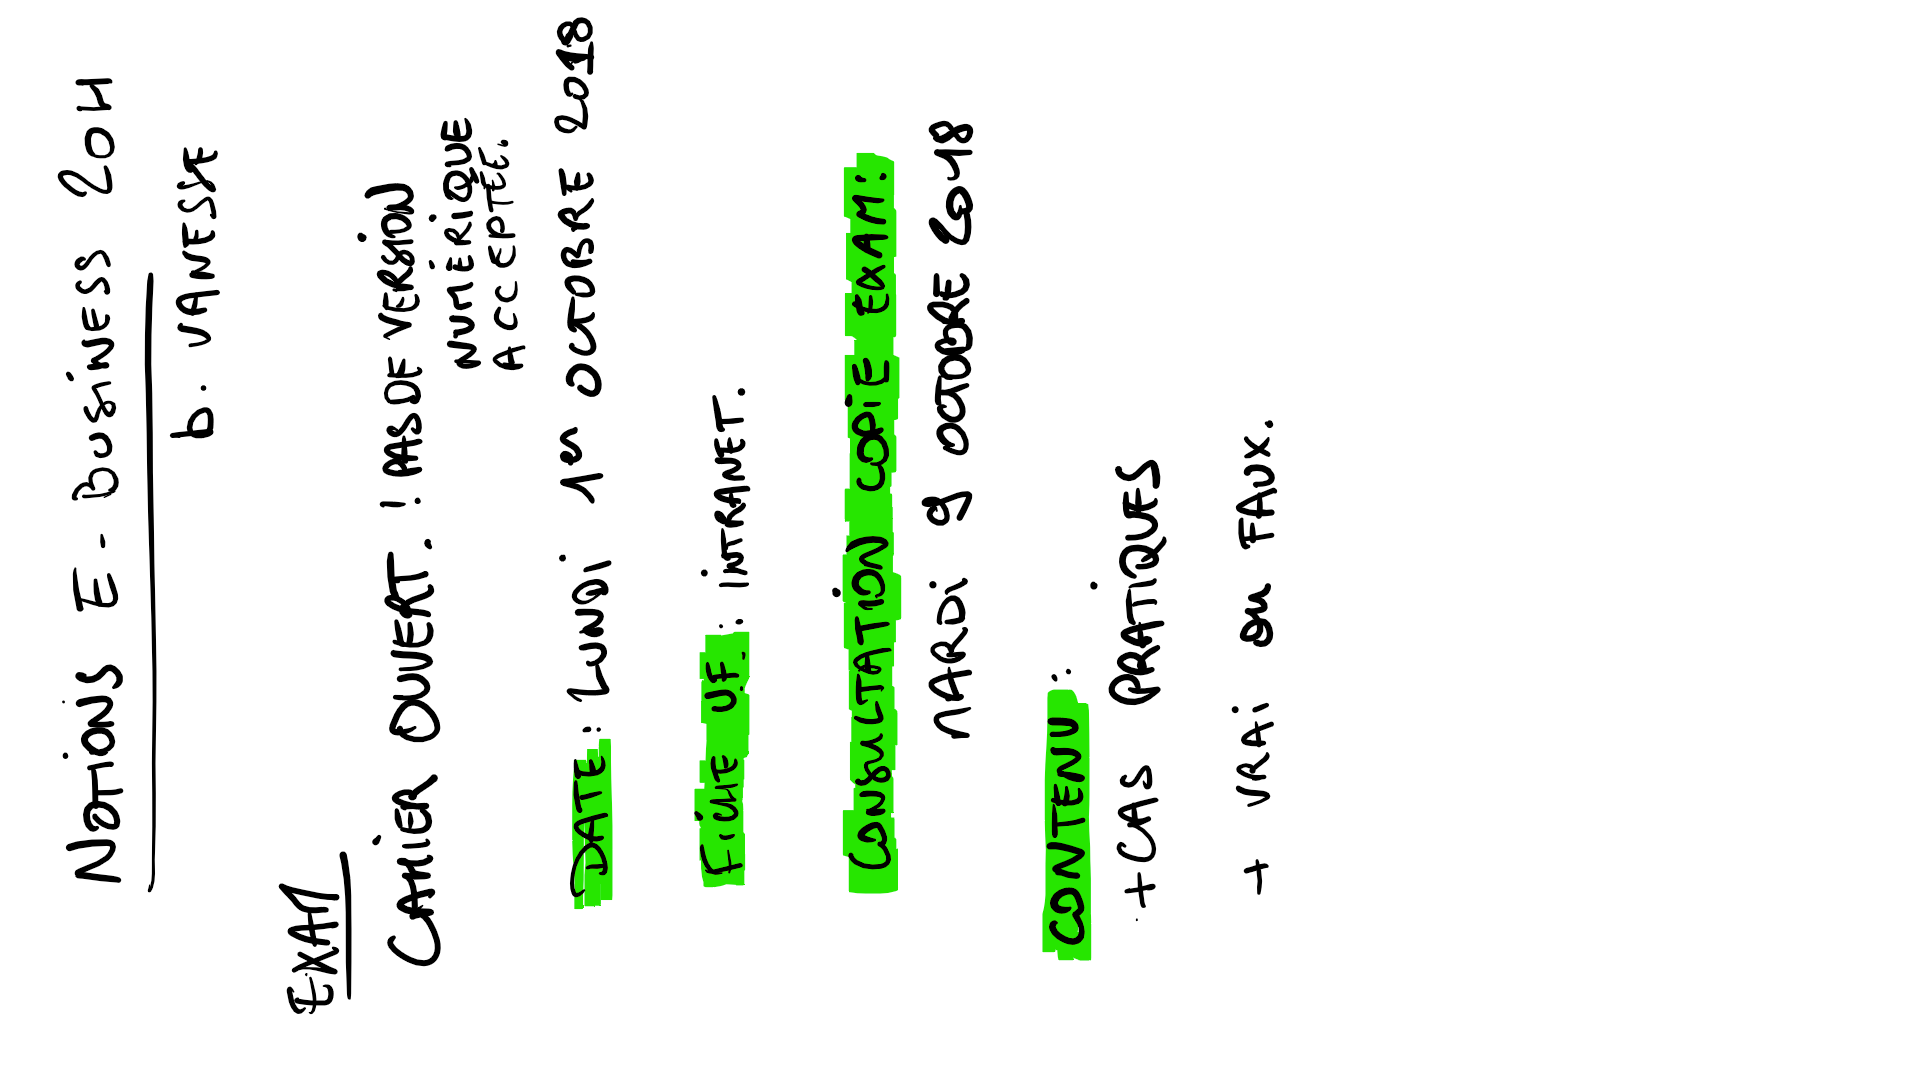 NOTIONS E-BUSINESS 20H
b. VANESSE
EXAM
CAHIER OUVERT. ! PAS DE VERSION
NUMÉRIQUE
ACCEPTÉE.
DATE : LUNDI 1er OCTOBRE 2018
FICHE UF. : INTRANET.
CONSULTATION COPIE EXAM :
MARDI 9 OCTOBRE 2018
CONTENU :
+ CAS PRATIQUES
+ VRAI ou FAUX.